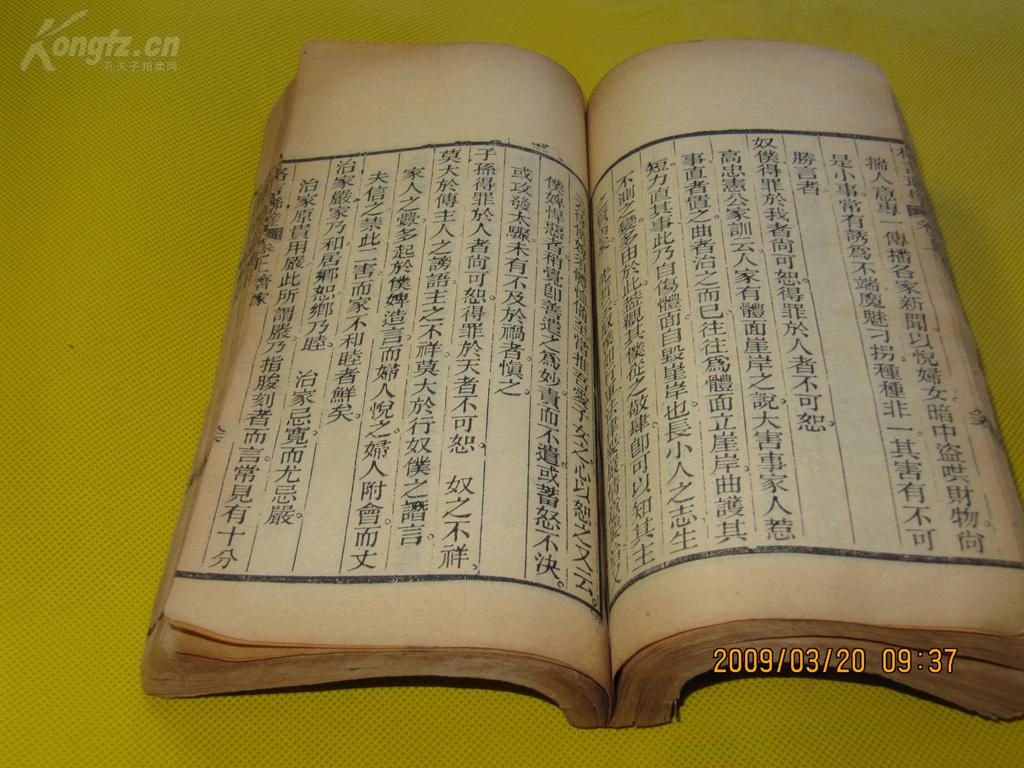 Kongfz.cn
孔夫子拍卖网
揣人意專一傳播各家新聞以悅婦女暗中盜哄財物尙
是小事常有誘爲不端魔魅刁拐種種非一其害有不可
勝言者
奴僕得罪於我者尙可恕得罪於人者不可恕
高忠憲公家訓云人家有體面崖岸之說大害事家人惹
事直者責之曲者治之而已往往爲體面立崖岸曲護其
短力直其事此乃自傷體面自毀崖岸也長小人之志生
不測之變多由於此益觀其僕從之敬肆卽可以知其主
心以恕之又云
僕婢悍惡者稍覺卽善遣之爲妙責而不遣或蓄怒不決
或攻發太驟未有不及於禍者愼之
子孫得罪於人者尙可恕得罪於天者不可恕 奴之不祥
莫大於傳主人之謗語主之不祥莫大於行奴僕之譖言
家人之釁多起於僕婢造言而婦人悅之婦人附會而丈
夫信之禁此二害而家不和睦者鮮矣
治家嚴家乃和居鄉恕鄉乃睦 治家忌寬而尤忌嚴
治家原貴用嚴此所謂嚴乃指朘刻者而言常見有十分
2009/03/20 09:37